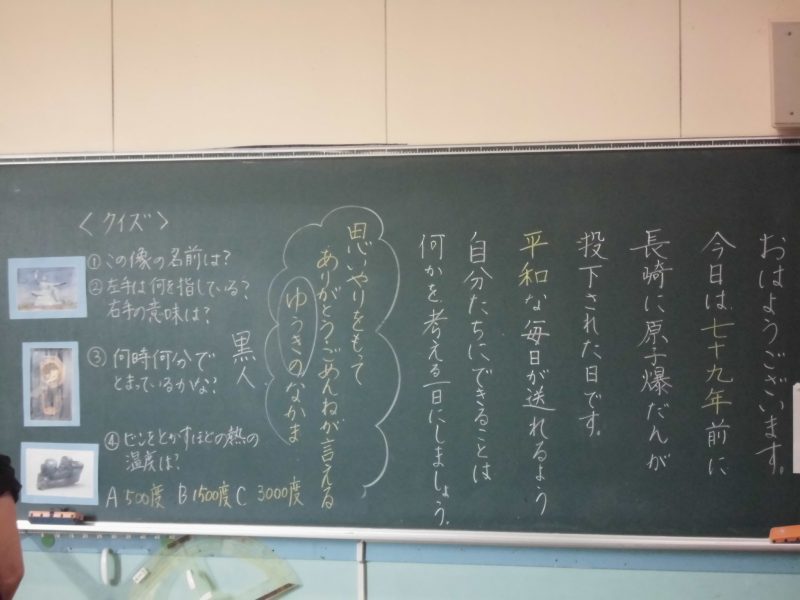 おはようございます。
今日は七十九年前に
長崎に原子爆だんが
投下された日です。
平和な毎日が送れるよう
自分たちにできることは
何かを考える一日にしましょう。
思いやりをもって
ありがとうごめんねが言える
ゆうきのなかま
黒人
〈クイズ〉
①この像の名前は?
②左手は何を指している?
右手の意味は?
③何時何分で
とまっているかな?
④ビンをとかすほどの熱の
温度は?
A 500度 B 1500度 C 3000度